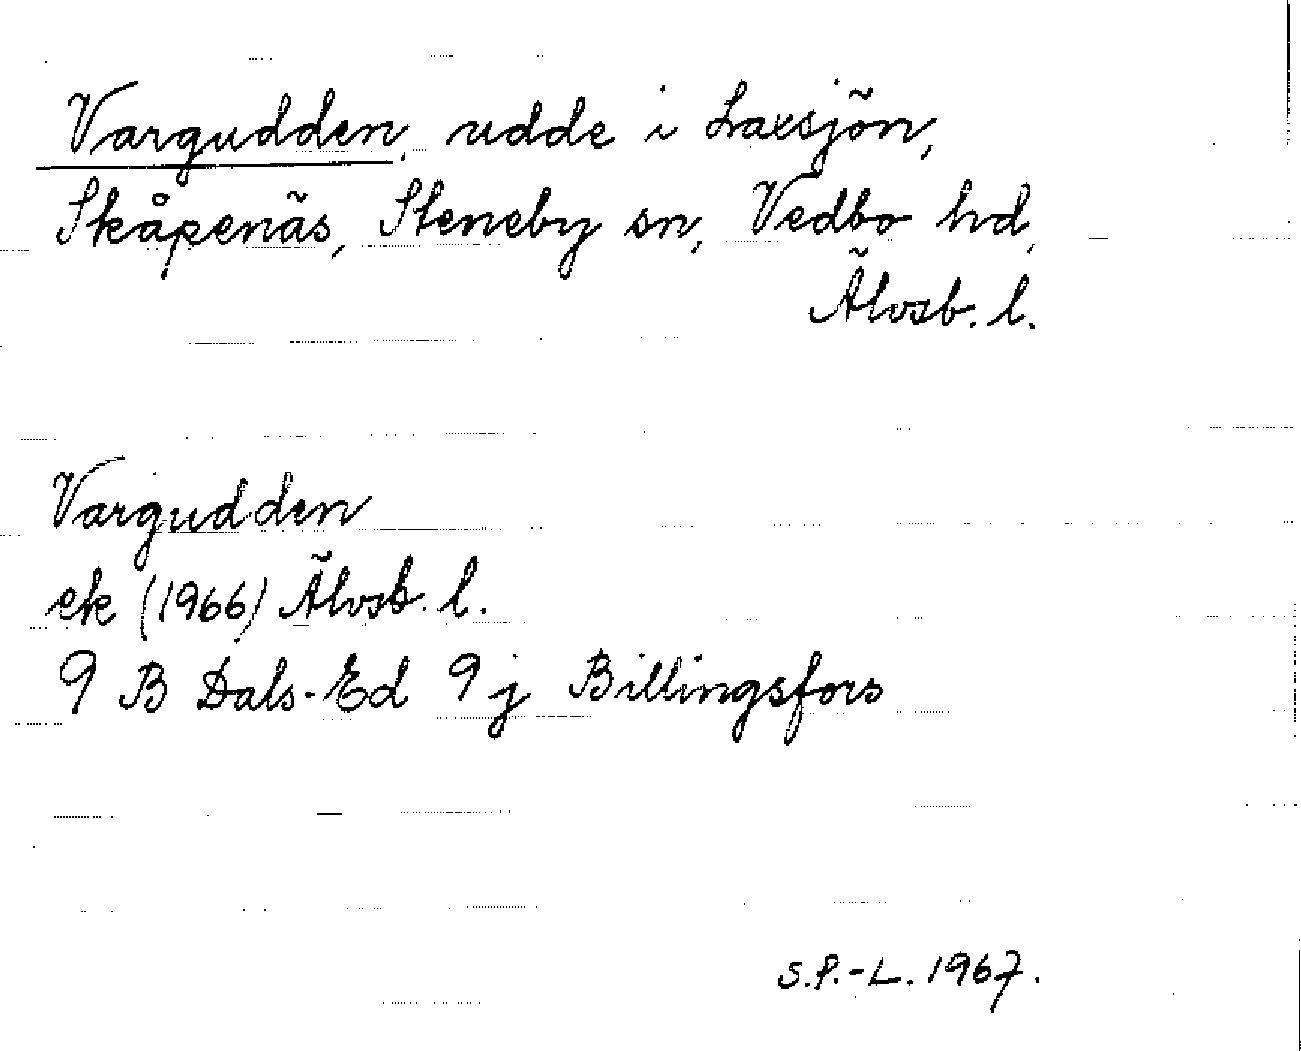 Vargudden, udde i Laxsjön,
Skåpenäs, Steneby sn, Vedbo hd,
Älvsb. l.
Vargudden
ek (1966) Älvsb. l.
9 B Dals-Ed 9 j Billingsfors
S.P.-L. 1967.